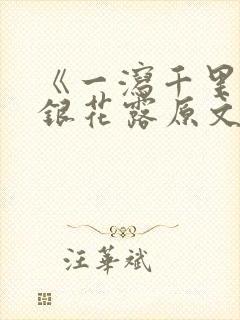 《一瀉千里
銀花露原文
汪華斌